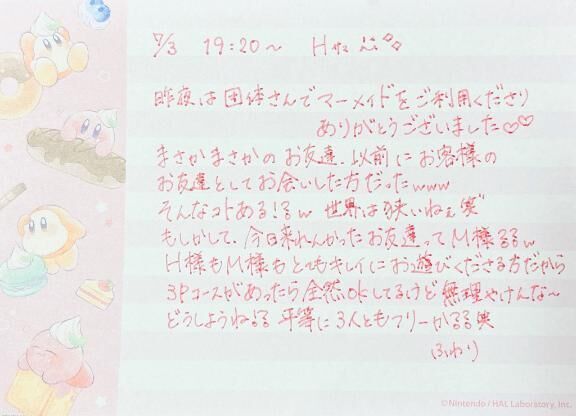 7/3 19:20〜 Hサマ
昨夜は団体さんでマーメイドをご利用くださり
ありがとうございました♡♡
まさかまさかのお友達、以前にお客様の
お友達としてお会いした方だったwww
そんなコトある!?w 世界は狭いねぇ笑
もしかして、今日来れんかったお友達ってM様??w
H様もM様もとってもキレイにお遊びくださる方だから
3Pコースがあったら全然okしてるけど無理やけんな〜
どうしようね!? 平等に3人ともフリーかな??笑
ふわり
©Nintendo / HAL Laboratory, Inc.